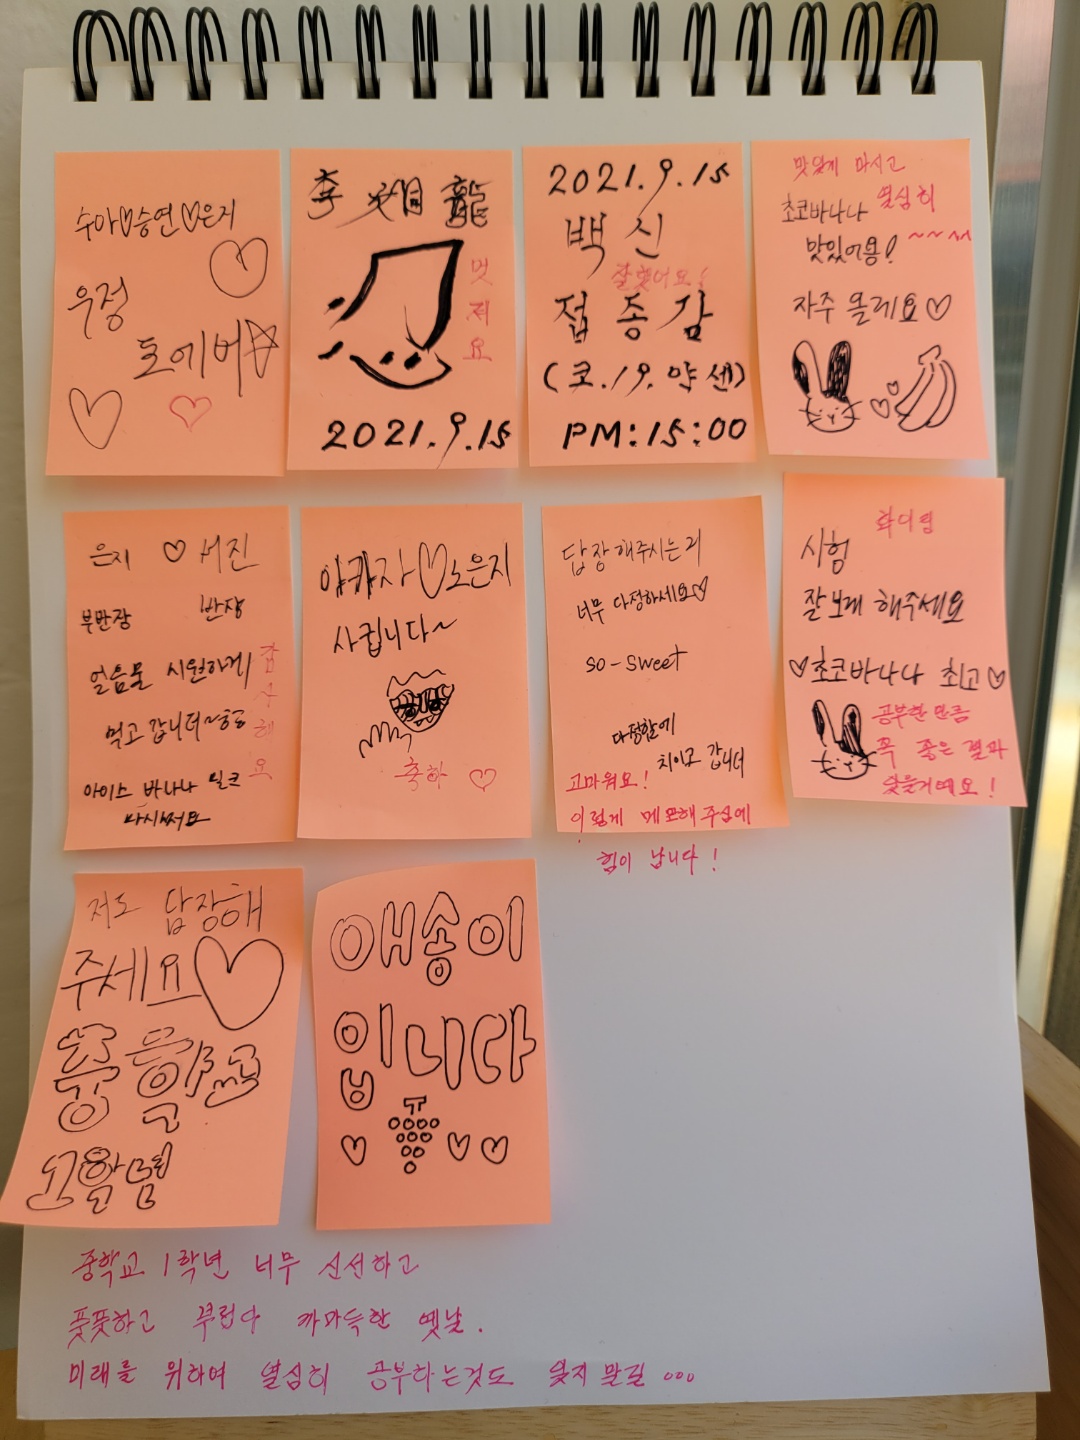 수아♡승연♡은지
우정
포에버☆
李 翊 龍
멋
져
요
2021.9.15
2021.9.15
백 신
잘했어요!
접 종 감
(코.19.약센)
PM:15:00
맛있게 마시고
초코바나나 열심히
맛있어용! ~~~
자주 올게요♡
은지 ♡ 서진
부반장 반장
얼음물 시원하게
먹고 갑니더~ㅎㅎ
아이스 바나나 밀크
마시써요
감
사
해
요
야캬자♡노은지
사킵니다~
축하 ♡
답장해주시는거
너무 다정하세요♡
so-sweet
다정함에
치이고 갑니더
고마워요!
이렇게 메모해주심에
힘이 납니다!
화이팅
시험
잘보게 해주세요
♡초코바나나 최고♡
공부한 만큼
꼭 좋은 결과
있을거예요!
저도 답장해
주세요♡
중 학교
1학년
애송이
입니다
중학교 1학년 너무 신선하고
풋풋하고 부럽다 까마득한 옛날.
미래를 위하여 열심히 공부하는것도 잊지 말길...